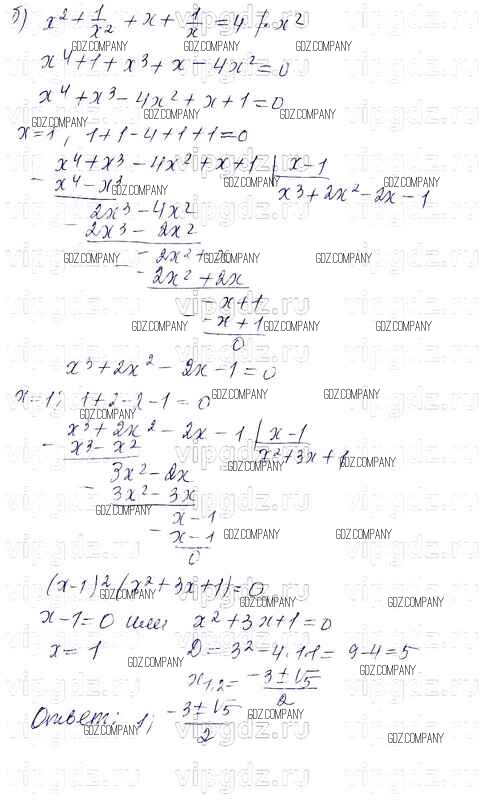 б) x² + 1/x² + x + 1/x = 4 |· x²
x⁴ + 1 + x³ + x - 4x² = 0
x⁴ + x³ - 4x² + x + 1 = 0
x = 1; 1 + 1 - 4 + 1 + 1 = 0
x⁴ + x³ - 4x² + x + 1 | x - 1
- x⁴ - x³ x³ + 2x² - 2x - 1
2x³ - 4x²
- 2x³ - 2x²
- 2x² + x
- - 2x² + 2x
- x + 1
- - x + 1
0
x³ + 2x² - 2x - 1 = 0
x = 1; 1 + 2 - 2 - 1 = 0
x³ + 2x² - 2x - 1 | x - 1
- x³ - x² x² + 3x + 1
3x² - 2x
- 3x² - 3x
x - 1
- x - 1
0
(x-1)²(x² + 3x + 1) = 0
x - 1 = 0 или x² + 3x + 1 = 0
x = 1 D = 3² - 4·1·1 = 9 - 4 = 5
x₁,₂ = (-3 ± √5)/2
Ответ: 1; (-3 ± √5)/2
GDZ.COMPANY
vipgdz.ru